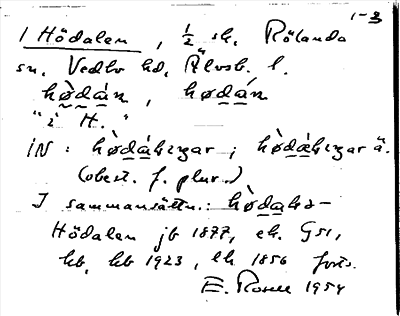 1-3
1 Hödalen, 1/2 sk. Rölanda
sn, Vedbo hd, Älvsb. l.
hø̀dán, hødán
"i H."
IN: hø̀dáḷiŋar; hø̀dáḷiŋar ä.
(obest. f. plur.)
I sammansättn.: hø̀daḷs-
Hödalen jb 1877, ek. G51,
hb, kb 1923, lk 1856 forts.
E. Rosell 1954